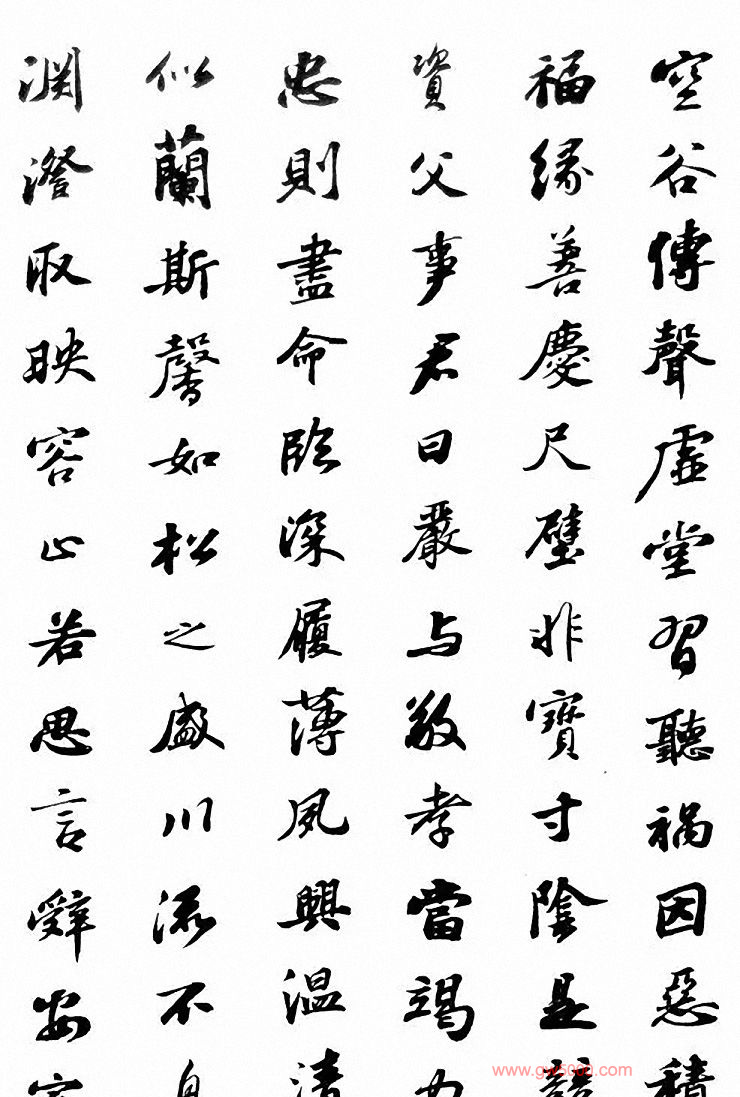 空谷傳聲虛堂習聽禍因惡積
福緣善慶尺璧非寶寸陰是競
資父事君曰嚴与敬孝當竭力
忠則盡命臨深履薄夙興温清
似蘭斯馨如松之盛川流不息
淵澄取映容止若思言辭安定
www.gw5000.com